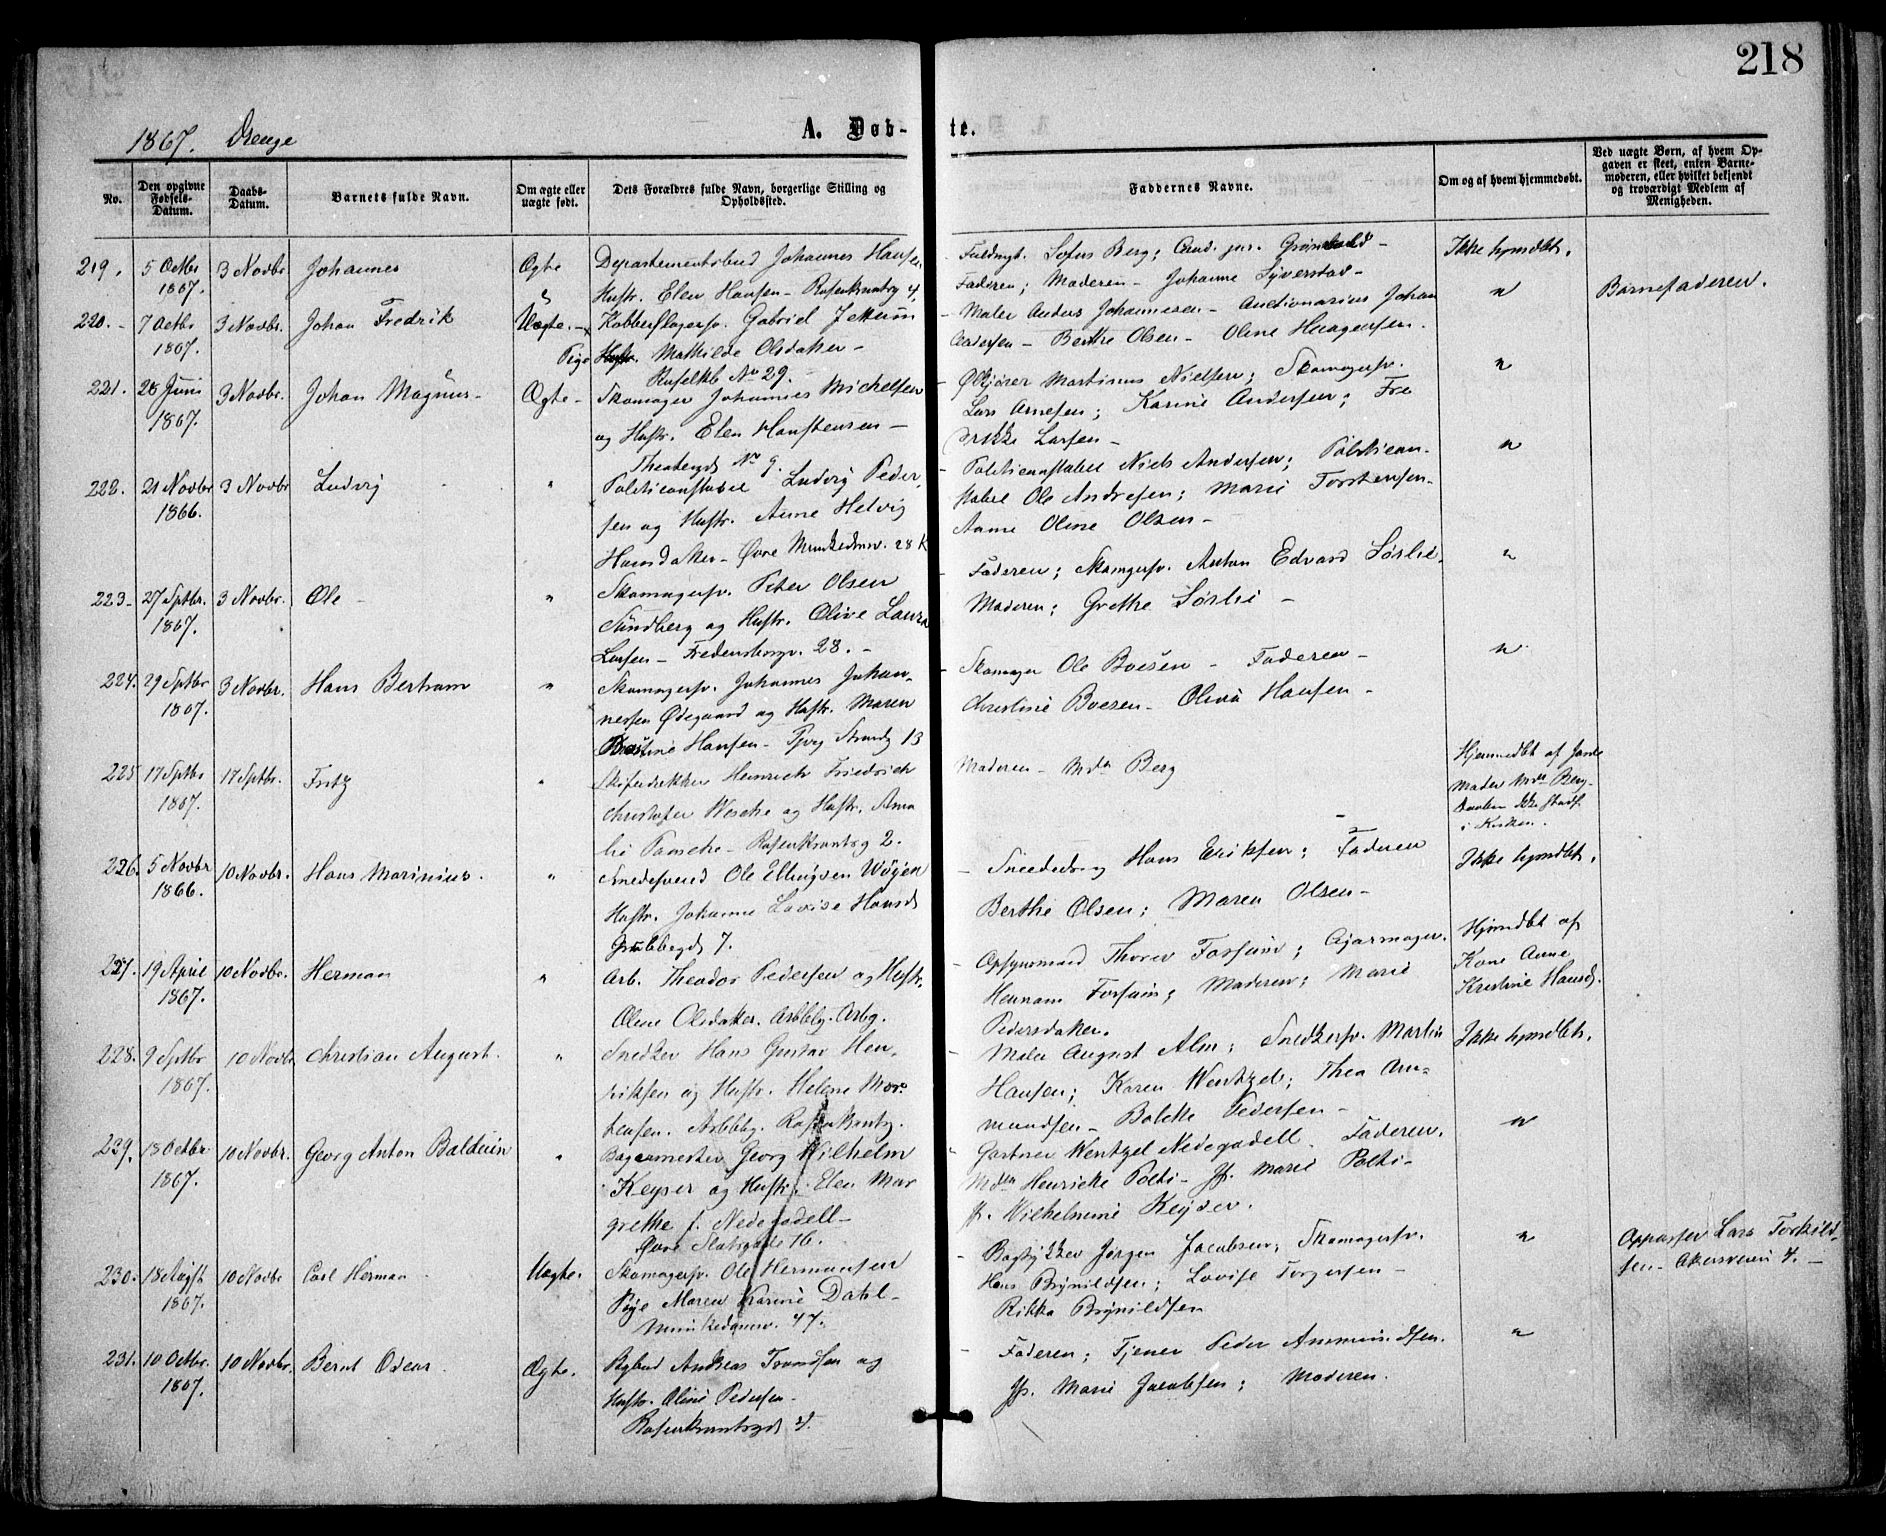 218
1867. Drenge
A. Døb-te.
No.
Den opgivne Fødsels-Datum.
Daabs-Datum.
Barnets fulde Navn.
Om ægte eller uægte født.
Dets Forældres fulde Navn, borgerlige Stilling og Opholdssted.
Faddernes Navne.
Om og af hvem hjemmedøbt.
Ved uægte Børn, af hvem Opgaven er skeet, enten Barnemoderen, eller hvilket bekjendt og troværdigt Medlem af Menigheden.
219. 5 Octbr 1867. 3 Novbr Johannes Ægte
Departementsbud Johannes Hansen
Hustr. Elen Hansen - Rosenkrantzg 4.
Fuldmgt. Sofus Berg; Cand. jur.
Faderen; Moderen - Johanne Syverstad -
Ikke hjmdbt.
220. - 7 Octbr 1867. 3 Novbr. Johan Fredrik Uægte. -
Kobberslagersv. Gabriel
Pige Mathilde Olsdatter -
No 29.
- Maler Anders Johannesen - Auctionarius Johan
Andersen - Berthe Olsen - Oline Haagensen.
"
Barnefaderen.
221. 28 Juni 1867. 3 Novbr. Johan Magnus - Ægte -
Skomager Johannes Michelsen
og Hustr. Elen Hanstensen -
Theatergd No 9.
- Ølkjører Martinus Nielsen; Skomagersv.
Lars Arnesen; Karine Andersen; Fre
drikke Larsen -
"
222. 21 Novbr 1866. 3 Novbr Ludvig "
Politiconstabel Ludvig Peder-
sen og Hustr. Anne Helvig
Hansdatter - Øvre Munkedmv. 28 K
- Politiconstabel Niels Andersen; Politicon-
stabel Ole Andresen; Marie Torstensen -
Anne Oline Olsen -
"
223 - 27 Septbr. 1867. 3 Novbr. Ole - "
Skomagersv. Peter Olsen
Sundberg og Hustr. Olive Laura
Larsen - Fredensborgv. 28. -
- Faderen; Skomgersv. Anton Edvard Sørlie.
Moderen; Grethe Sørlie -
"
224. 29 Septbr 1867. 3 Novbr. Hans Bertram "
Skomagersv. Johannes Johan-
nessen Ødegaard og Hustr. Maren
Kristine Hansen - Pjvg Strandg 13
- Skomager Ole Boesen - Faderen -
Christine Boesen - Olive Hansen -
"
225 17 Septbr 1867. 17 Septbr. Fritz "
Skiferdækker Heinrich Friedrich
Christofer Wesche og Hustr. Ama
lie Paasche - Rosenkrantzg 2.
Moderen - Mdm Berg
Hjemmedbt af Jorde
Moder Mdm Berg.
Daaben ikke stadf.
i Kirken.
226. 5 Novbr 1866. 10 Novbr. Hans Marinius. "
Snedkersvend Ole Ellingsen Wøyen
Hustr. Johanne Lovise Hansd
Grubbegd 7.
- Hans Eriksen; Faderen
Berthe Olsen; Maren Olsen -
Ikke hjmdbt.
227. 19 April 1867. 10 Novbr. Herman "
Arb. Theodor Pedersen og Hustr.
Oline Olsdatter. Arbbbg. Arbg.
- Opsynsmand Thorer Fossum; Cigarmager.
Hermann Fossum; Moderen; Marie
Pedersdatter.
Hjmdbt af
Kone Anne
Kristine Hansd.
228. 9 Septbr 1867. 10 Novbr Christian August. "
Snedker Hans Gustav Hen-
riksen og Hustr. Helene Mor-
tensen. Arbbbg. Rosenkrantzg.
- Maler August Alm; Snedkersv. Martin
Hansen; Karen Wentzel; Thea Am-
mundsen - Bolette Pedersen -
Ikke hjmdbt.
229. 18 Octbr 1867. 10 Novbr. Georg Anton Balduin "
Bagermester Georg Wilhelm
Keyser og Hustr. Elen Mar
grethe f. Nedegadell -
Øvre Slotsgade 16.
- Gartner Wentzel Nedegadell. Faderen.
Mdm Henricke Polti - Jfr. Marie Polti -
Jfr. Wilhelmine Keyser.
"
230. 18 Augst 1867. 10 Novbr Carl Herman Uægte.
Skomagersv. Ole Hermansen
Pige Maren Karine Dahl -
Munkedamsv. 47.
- Bogtrykker Jørgen Jacobsen; Skomagersv.
Hans Brynildsen; Lovise Torgersen -
Rikka Brynildsen
"
Oppasser Lars Torkild-
sen - Akersveien 4. -
231. 10 Octbr. 1867. 10 Novbr. Bernt Oscar Ægte.
Bybud Andreas Trondsen og
Hustr. Oline Pedersen -
Rosenkrantzgd 4.
- Faderen; Tjener Peder Ammundsen.
Jfr. Marie Jacobsen; Moderen.
"